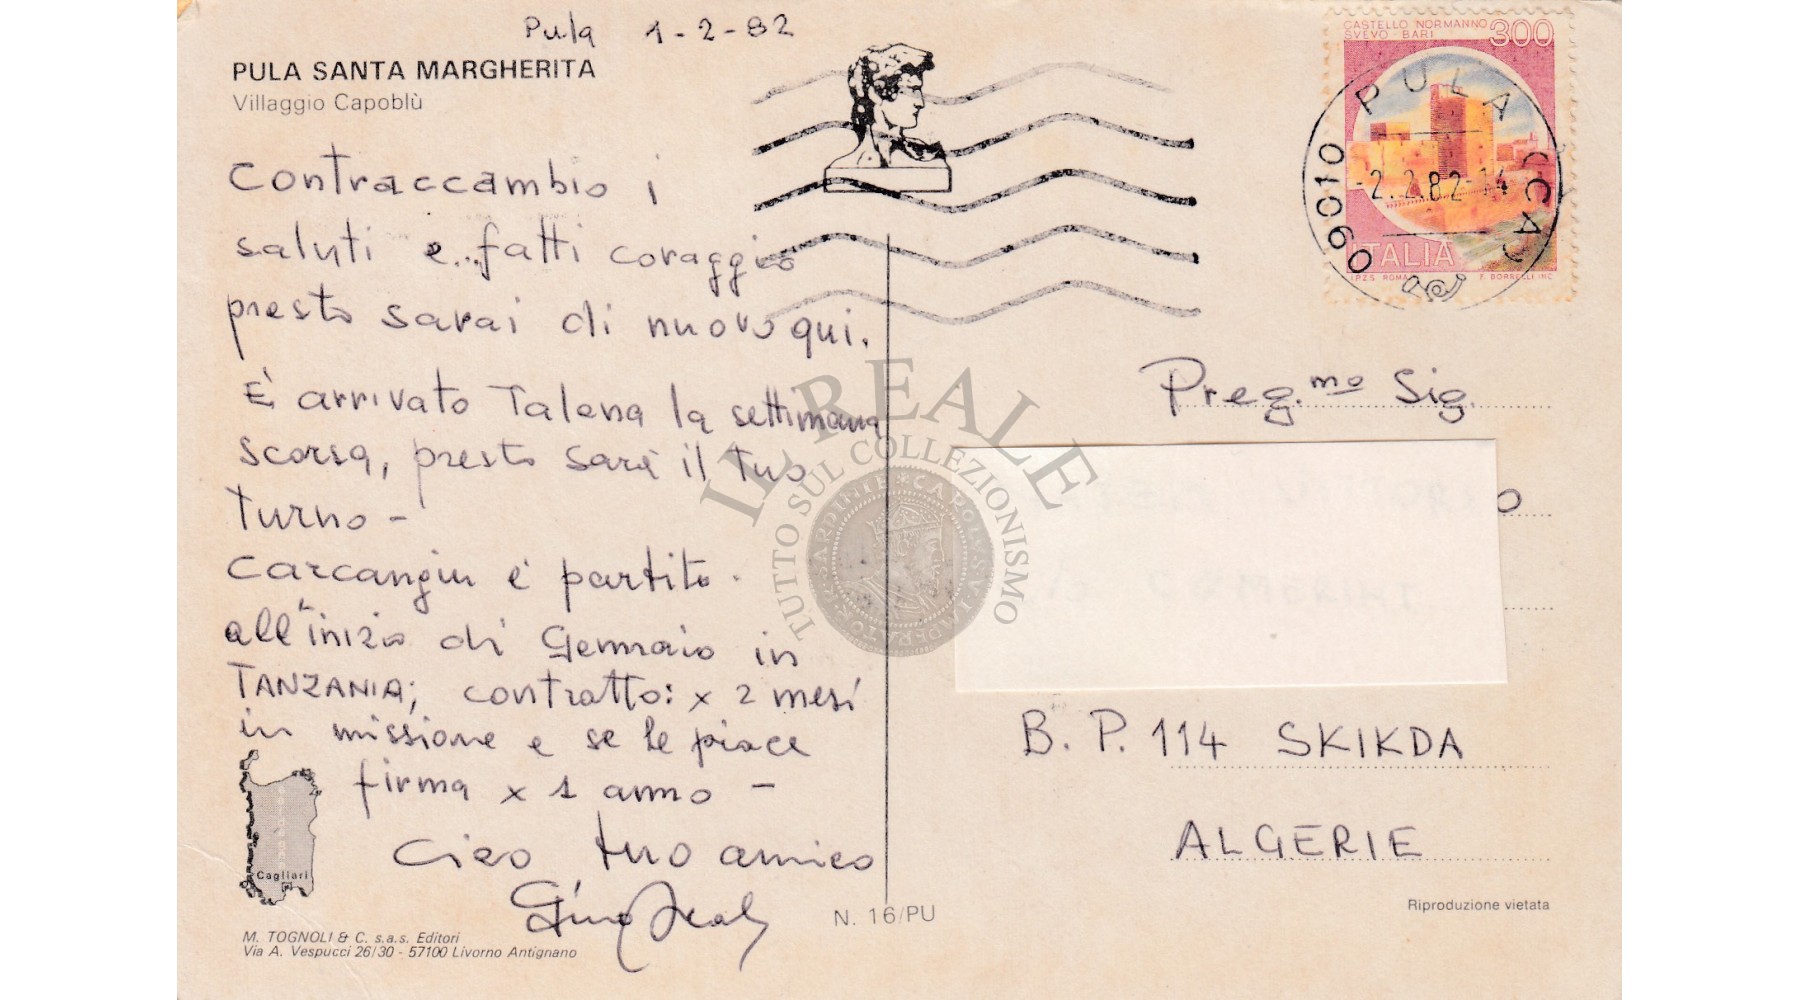 Pula 1-2-82
PULA SANTA MARGHERITA
Villaggio Capoblù
Contraccambio i
saluti e...fatti coraggio
presto sarai di nuovo qui.
È arrivato Talena la settimana
scorsa, presto sarà il tuo
turno -
Carcangiu è partito
all'inizio di Gennaio in
TANZANIA; contratto: x 2 mesi
in missione e se le piace
firma x 1 anno -
Ciao tuo amico
Gino
Cagliari
M. TOGNOLI & C. s.a.s. Editori
Via A. Vespucci 26/30 - 57100 Livorno Antignano
N. 16/PU
CASTELLO NORMANNO
SVEVO - BARI
300
ITALIA
I.P.Z.S. ROMA F. BORRELLI INC.
09010 PULA (CA)
-2.2.82-14
Preg.mo Sig.
O
B.P. 114 SKIKDA
ALGERIE
Riproduzione vietata
IL REALE
TUTTO SUL COLLEZIONISMO